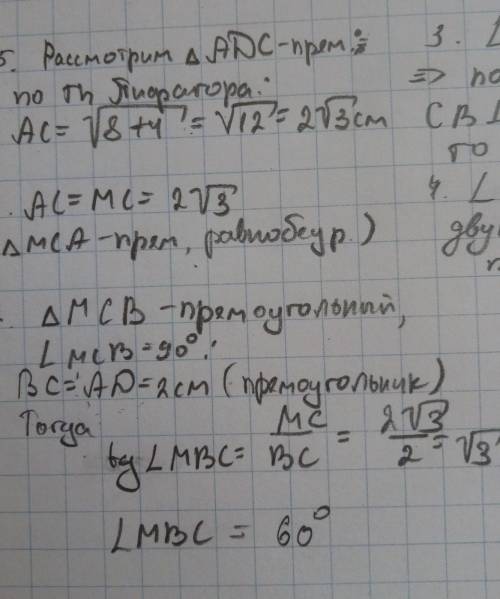 5. Рассмотрим △ADC-прям.:
3. L
по th Пифагора:
=> по
AC = √8+4 = √12 = 2√3 см
CB ⊥
то
AC = MC = 2√3
4. L
△MCA - прям, равнобедр.)
дву
△MCB - прямоугольный,
∠MCB = 90°:
BC = AD = 2см (прямоугольник)
Тогда
tg∠MBC = MC/BC = 2√3/2 = √3
∠MBC = 60°